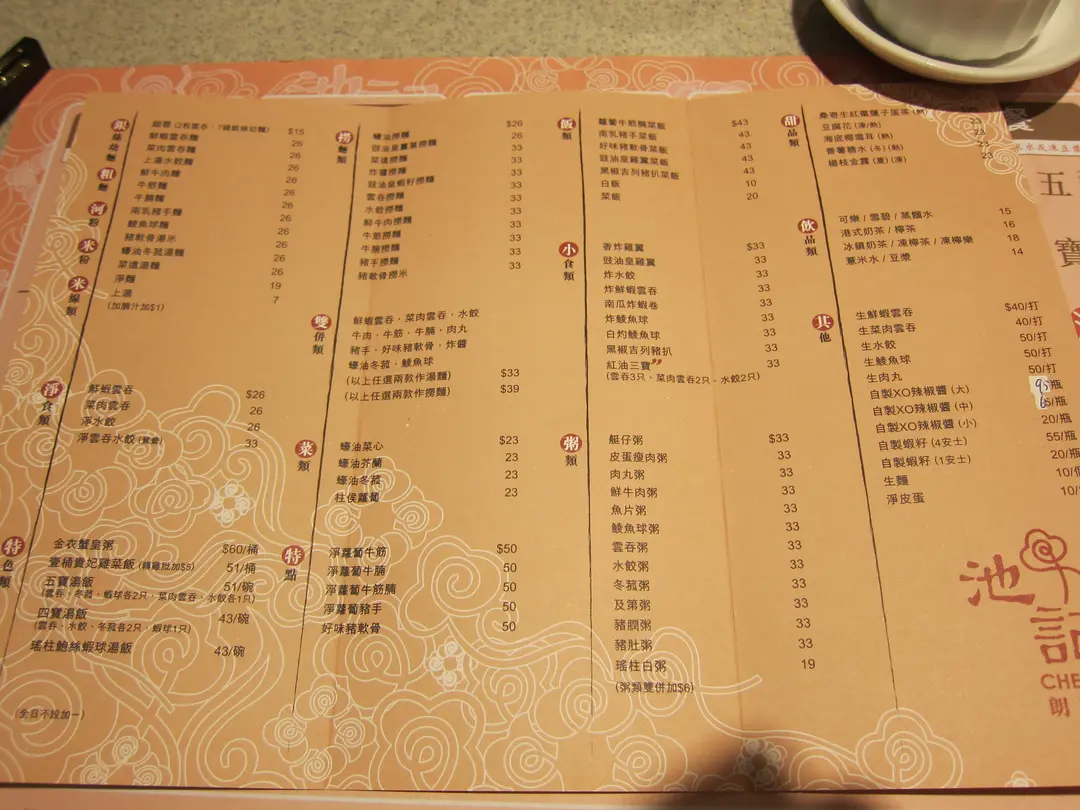 銀絲幼麵 粗麵 河粉 米粉 米線類
細蓉 (2粒雲吞、7錢銀絲幼麵) $15
鮮蝦雲吞麵 26
菜肉雲吞麵 26
上湯水餃麵 26
鮮牛肉麵 26
牛筋麵 26
牛腩麵 26
南乳豬手麵 26
鯪魚球麵 26
豬軟骨湯米 26
蠔油冬菰湯麵 26
菜遠湯麵 26
淨麵 19
上湯 7
(加腩汁加$1)
淨食類
鮮蝦雲吞 $26
菜肉雲吞 26
淨水餃 26
淨雲吞水餃 (鴛鴦) 33
特色類
金衣蟹皇粥 $60/桶
壹桶貴妃雞菜飯 (轉雞肶加$5) 51/桶
五寶湯飯 51/碗
(雲吞、冬菰、蝦球各2只、菜肉雲吞、水餃各1只)
四寶湯飯 43/碗
(雲吞、水餃、冬菰各2只、蝦球1只)
瑤柱鮑絲蝦球湯飯 43/碗
(全日不設加一)
撈麵類
蠔油撈麵 $26
豉油皇薑菜撈麵 33
菜遠撈麵 33
炸醬撈麵 33
豉油皇蝦籽撈麵 33
雲吞撈麵 33
水餃撈麵 33
鮮牛肉撈麵 33
牛筋撈麵 33
牛腩撈麵 33
豬手撈麵 33
豬軟骨撈米 33
雙併類
鮮蝦雲吞、菜肉雲吞、水餃
牛肉、牛筋、牛腩、肉丸
豬手、好味豬軟骨、炸醬
蠔油冬菰、鯪魚球
(以上任選兩款作湯麵) $33
(以上任選兩款作撈麵) $39
菜類
蠔油菜心 $23
蠔油芥蘭 23
蠔油冬菰 23
柱侯蘿蔔 23
特點
淨蘿蔔牛筋 $50
淨蘿蔔牛腩 50
淨蘿蔔牛筋腩 50
淨蘿蔔豬手 50
好味豬軟骨 50
飯類
蘿蔔牛筋腩菜飯 $43
南乳豬手菜飯 43
好味豬軟骨菜飯 43
豉油皇雞翼菜飯 43
黑椒吉列豬扒菜飯 43
白飯 10
菜飯 20
小食類
香炸雞翼 $33
豉油皇雞翼 33
炸水餃 33
炸鮮蝦雲吞 33
南瓜炸蝦卷 33
炸鯪魚球 33
白灼鯪魚球 33
黑椒吉列豬扒 33
紅油三寶 33
(雲吞3只、菜肉雲吞2只、水餃2只)
粥類
艇仔粥 $33
皮蛋瘦肉粥 33
肉丸粥 33
鮮牛肉粥 33
魚片粥 33
鯪魚球粥 33
雲吞粥 33
水餃粥 33
冬菰粥 33
及第粥 33
豬膶粥 33
豬肚粥 33
瑤柱白粥 19
(粥類雙併加$6)
甜品類
桑寄生紅棗蓮子蛋茶 (熱)
豆腐花 (凍/熱) 23
海底椰雪耳 (熱) 23
番薯糖水 (冬) (熱) 23
楊枝金露 (夏) (凍) 23
飲品類
可樂 / 雪碧 / 蒸餾水 15
港式奶茶 / 檸茶 16
冰鎮奶茶 / 凍檸茶 / 凍檸樂 18
薏米水 / 豆漿 14
其他
生鮮蝦雲吞 $40/打
生菜肉雲吞 40/打
生水餃 50/打
生鯪魚球 50/打
生肉丸 50/打
自製XO辣椒醬 (大) 95/瓶
自製XO辣椒醬 (中) 65/瓶
自製XO辣椒醬 (小) 20/瓶
自製蝦籽 (4安士) 55/瓶
自製蝦籽 (1安士) 20/瓶
生麵 10/個
淨皮蛋 10/
池記
CHE
朗
五
寶